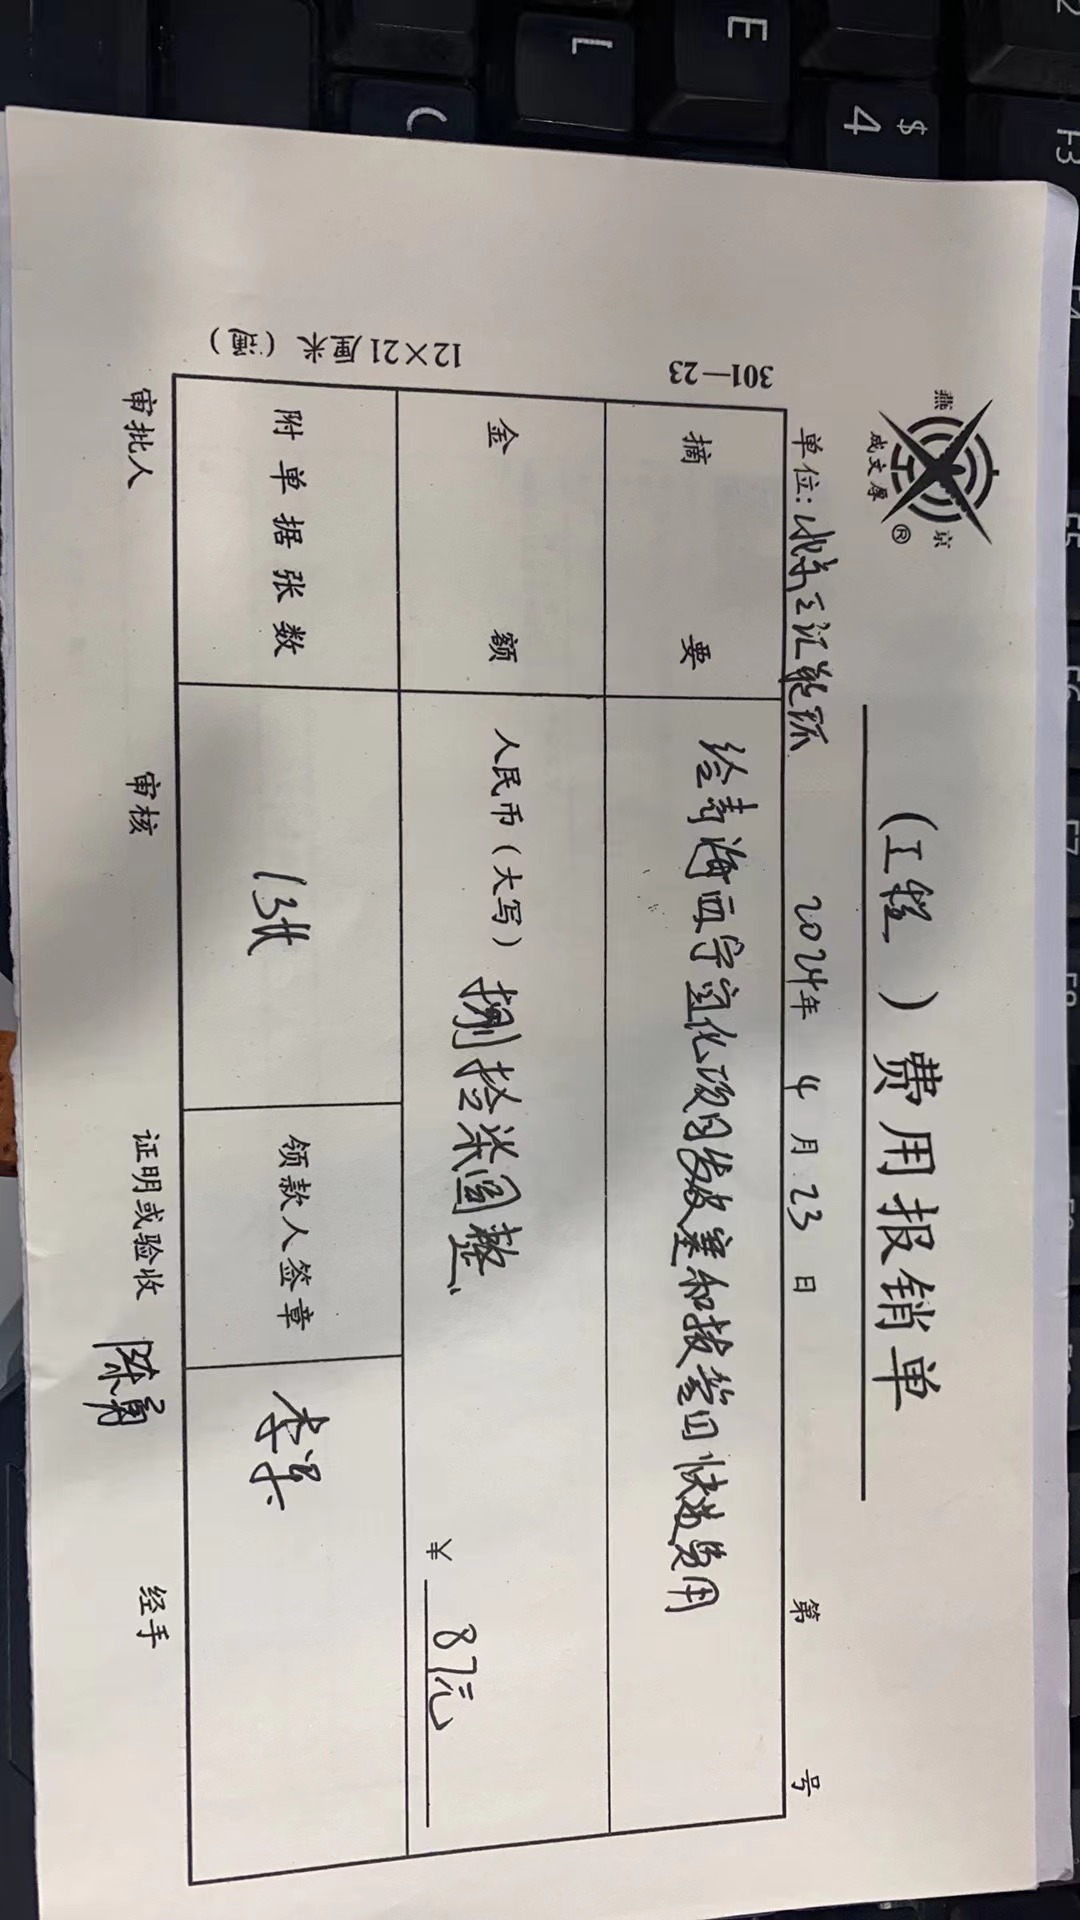 燕京
成文厚
®
（工程）费用报销单
单位：北京 2024年4月23日 第 号
摘要 给青海西宁 化项目发 和 回快递费用
金额 人民币（大写）捌拾柒圆整 ￥87元
附单据张数 13张 领款人签章 李
审批人 审核 证明或验收 陈勇 经手
301—23 12×21厘米
E
L
C
$
4
F3